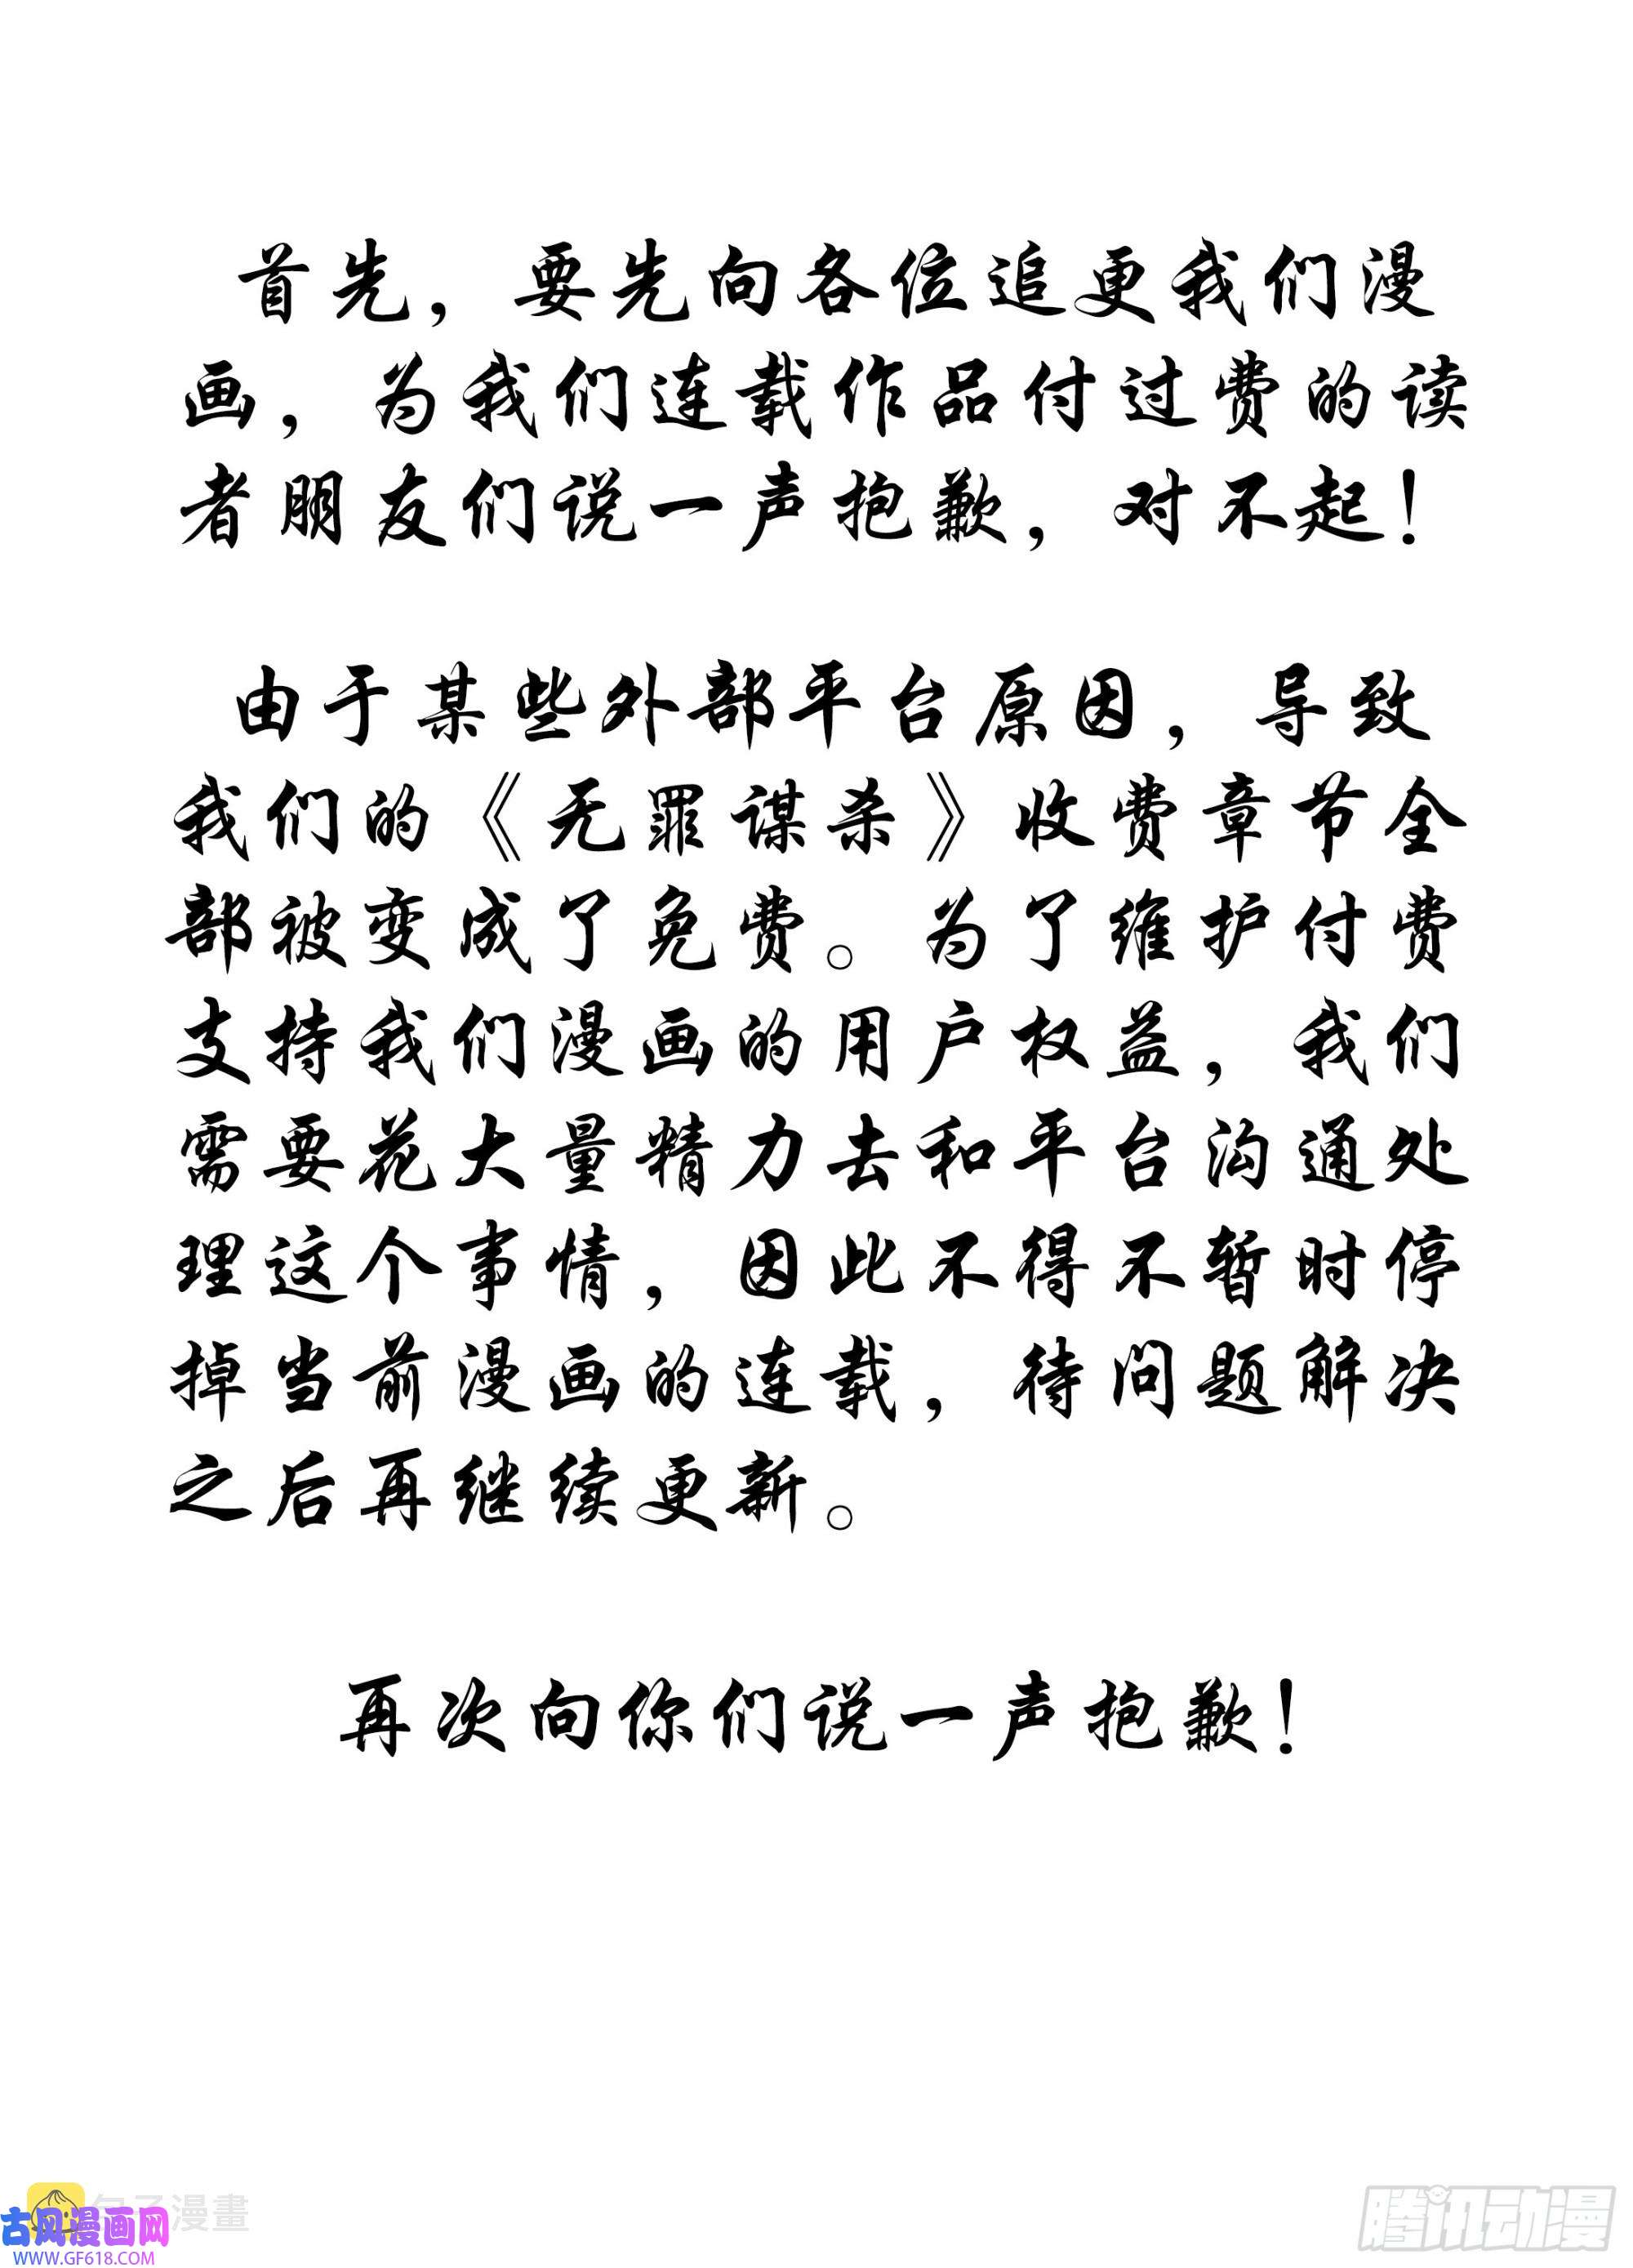 首先，要先向各位追更我们漫
画，为我们连载作品付过费的读
者朋友们说一声抱歉，对不起！
由于某些外部平台原因，导致
我们的《无罪谋杀》收费章节全
部被变成了免费。为了维护付费
支持我们漫画的用户权益，我们
需要花大量精力去和平台沟通处
理这个事情，因此不得不暂时停
掉当前漫画的连载，待问题解决
之后再继续更新。
再次向你们说一声抱歉！
包子漫畫
古风漫画网
WWW.GF618.COM
腾讯动漫